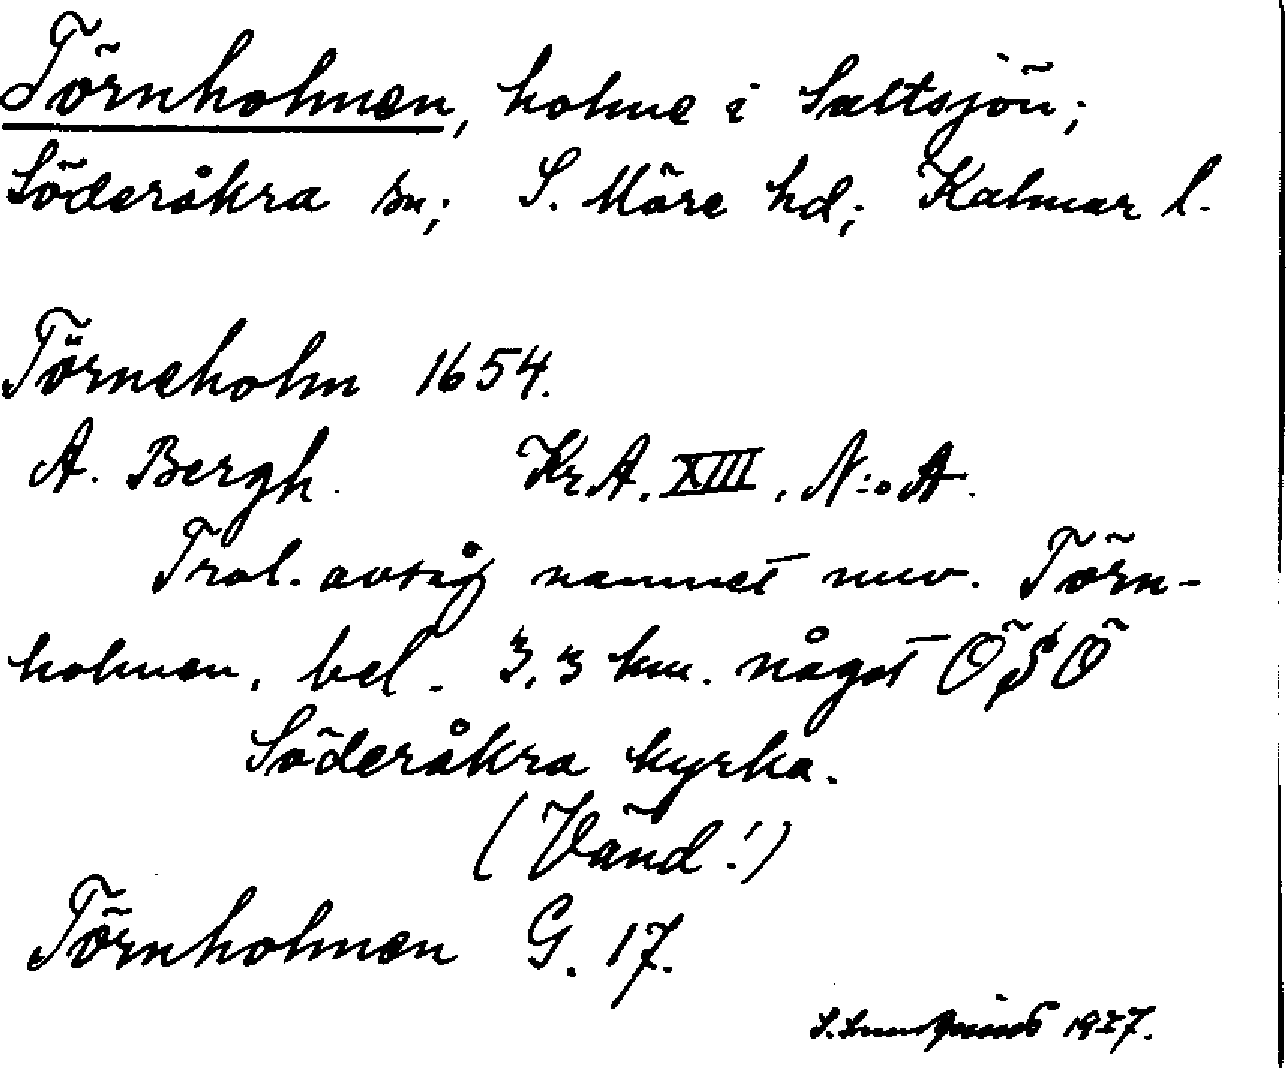 Törnholmen, holme i Saltsjön;
Söderåkra sn; S. Möre hd; Kalmar l.
Törneholm 1654.
A. Bergh. Kr A. XIII. N:o A.
Trol. avsåg namnet nuv. Törn-
holmen, bel. 3,3 km. något ÖSÖ
Söderåkra kyrka.
(Vänd!)
Törnholmen G. 17.
S. 1927.